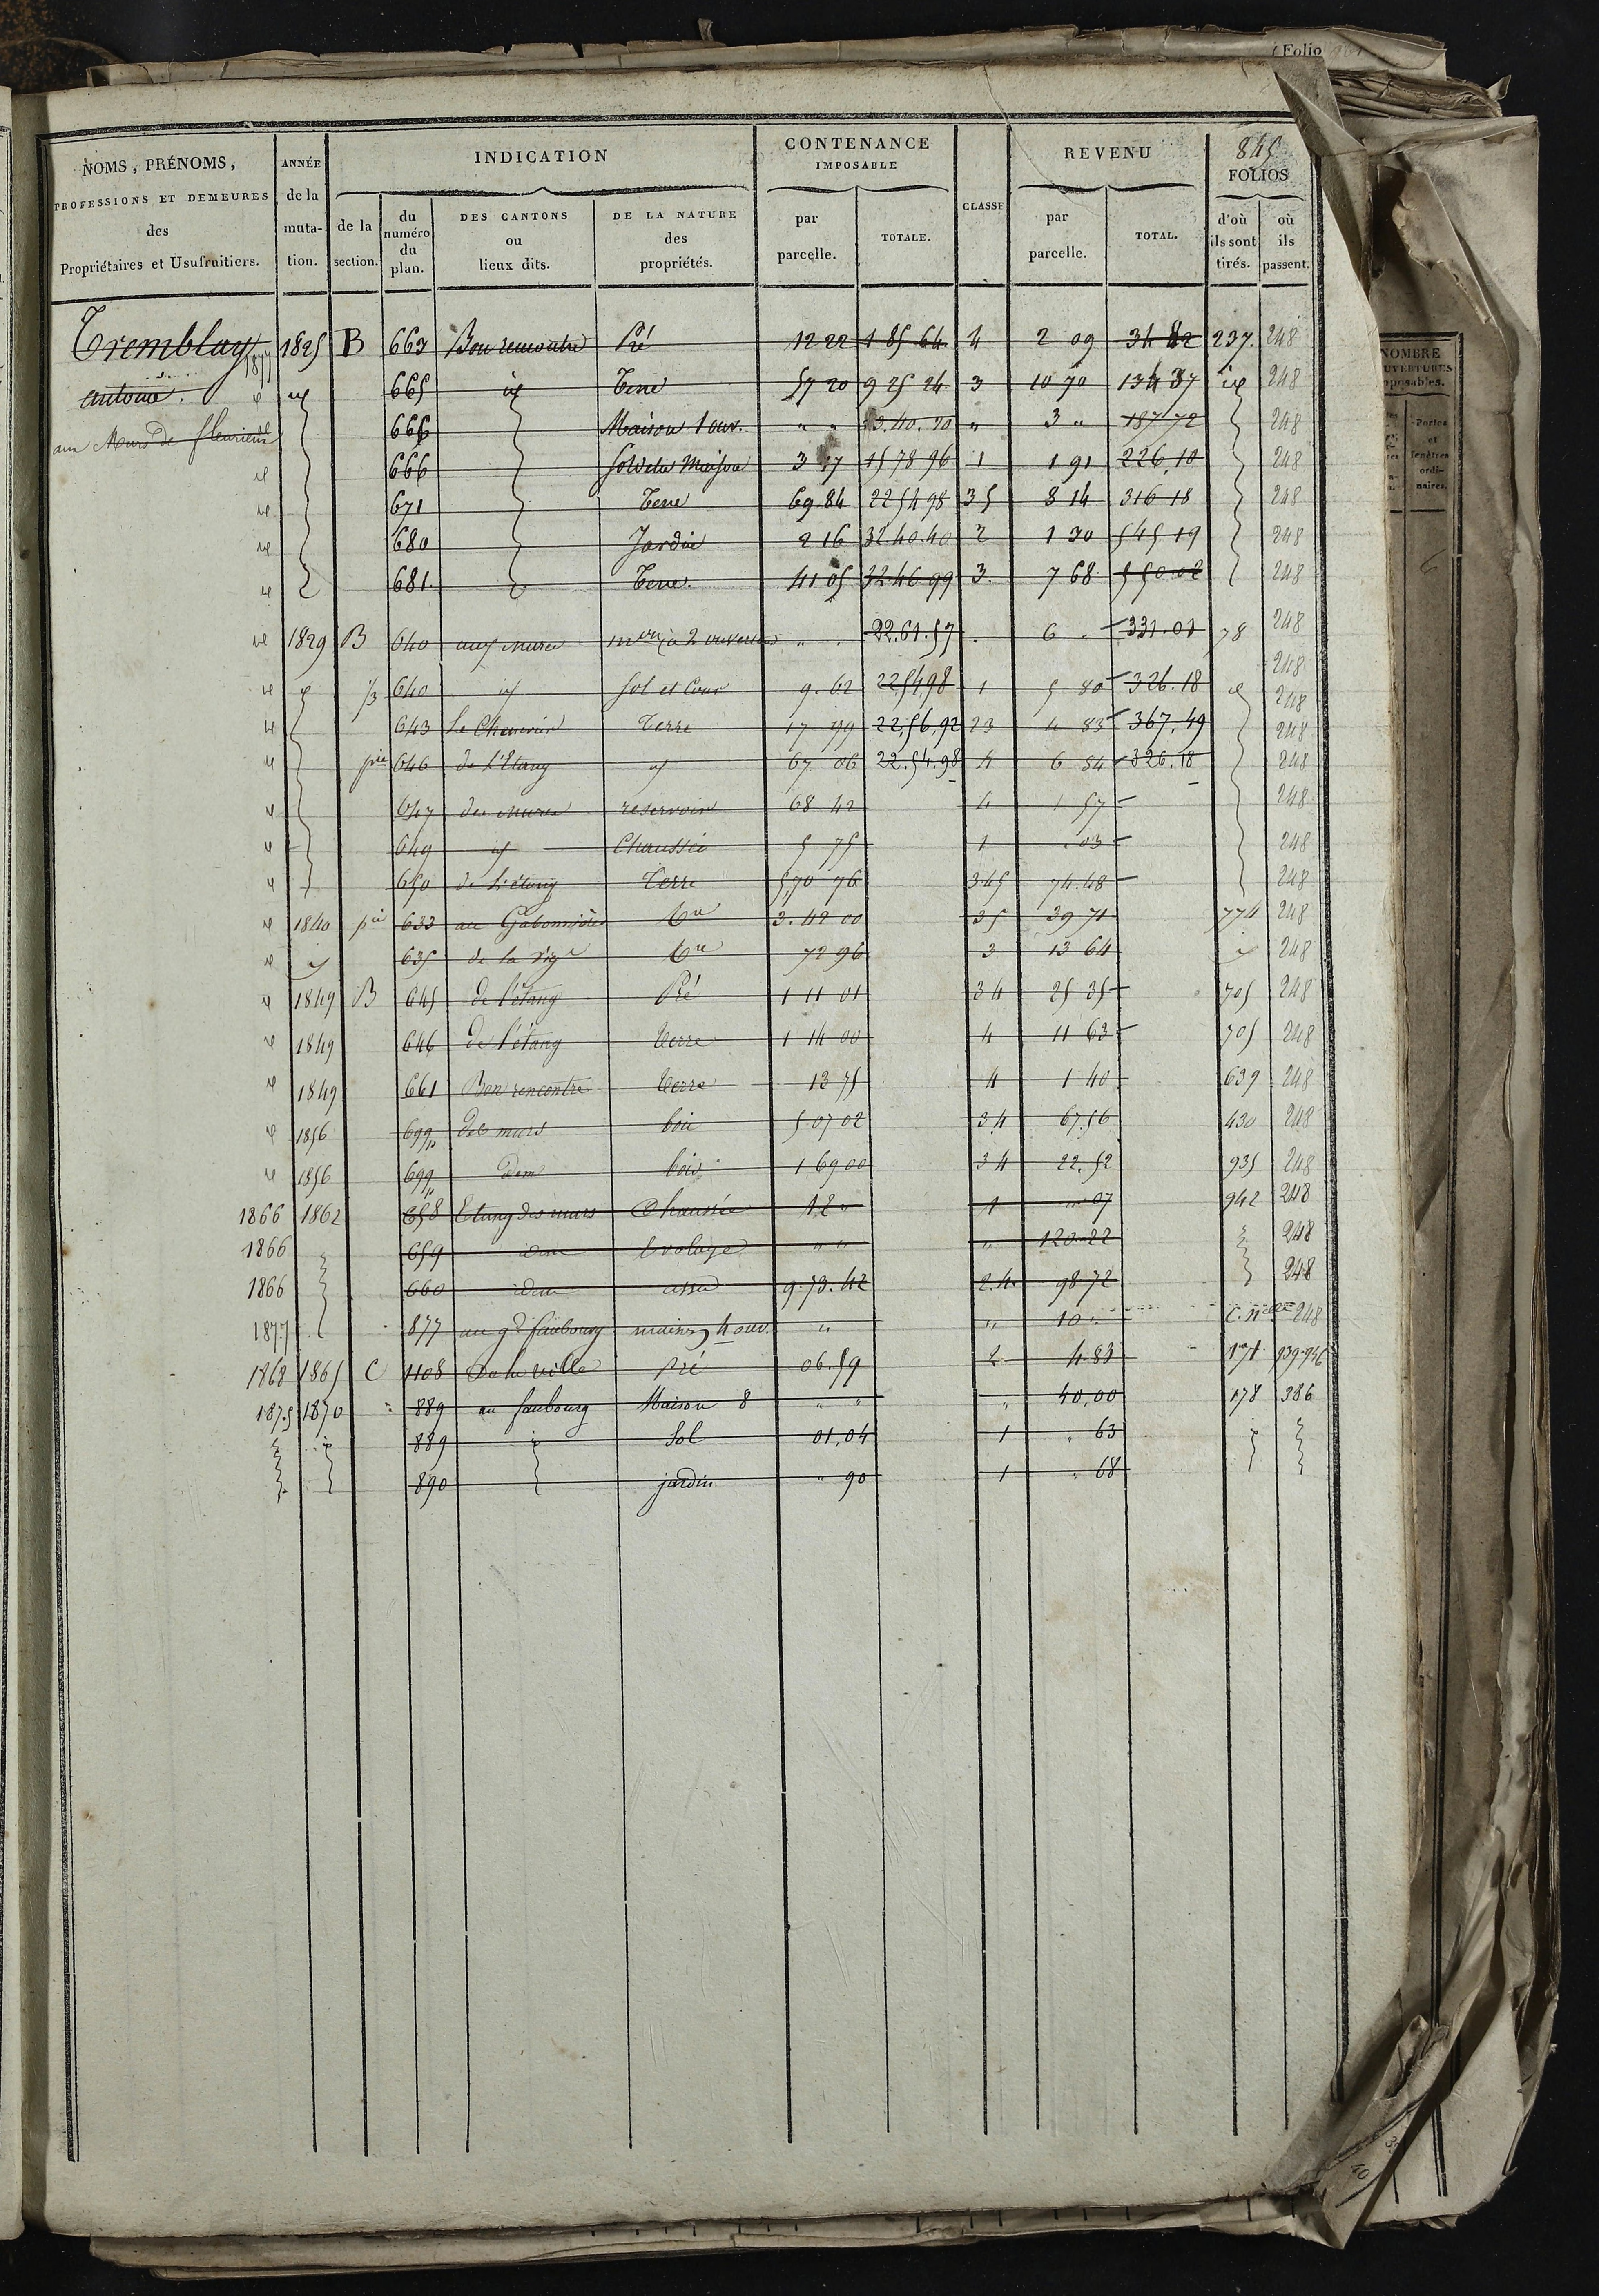 (Folio
845
NOMS, PRÉNOMS,
PROFESSIONS ET DEMEURES
des
Propriétaires et Usufruitiers.
ANNÉE
de la
muta-
tion.
INDICATION
de la
section.
du
numéro
du
plan.
DES CANTONS
ou
lieux dits.
DE LA NATURE
des
propriétés.
CONTENANCE
IMPOSABLE
par
parcelle.
TOTALE.
CLASSE
REVENU
par
parcelle.
TOTAL.
FOLIOS
d'où
ils sont
tirés.
où
ils
passent.
Tremblay 1877 1825 B 663 Bon rencontre Pré 12 22 1 85 64 4 2 09 34 82 237. 248
antoine. id id 665 id Terre 57 20 9 25 24 3 10 70 134 37 id 248
aux Murs de fleurieux 666 Maison 1 ouv. " " 13.40.90 " 3 " 187 72 248
id 666 Sol de la Maison 3 17 15 78 96 1 1 91 226 10 248
id 671 Terre 69.84 22 54 98 3 5 8 14 316 18 248
id 680 Jardin 2 16 32.40.40 2 1 30 545 19 248
id 681. Terre. 41 05 32.46 99 3. 7 68 550.02 248
id 1829 B 640 aux murs mon à 2 ouvertures " . 22.61.57 . 6 . 331.01 78 248
248
id id B 640 id Sol et Cour 9.62 225498 1 5 80 326.18 id 248
id 643 Le Chenevier Terre 17 99 22,56,92 2 3 4 83 367.49 248
id pie 646 de L'Etang id 67 06 22.54.98 4 6 84 326.18 248
id 647 des murs reservoir 68 42 4 1 57 248
id 649 id Chaussée 5 75 1 . 03 248
id 650 de L'étang Terre 5,70 76 3.4 5 74.48 248
id 1840 pie 633 au Gabonnière Tre 3.42 00 3 5 39 71 774 248
id id 635 de la vige Tre 72 96 3 13 64 id 248
id 1849 B 645 de l'étang Pré 1 11 01 3 4 25 35 705 248
id 1849 646 de l'étang terre 1 14 00 4 11 63 705 248
id 1849 661 Bon rencontre terre 13 75 4 1 40 639 248
id 1856 699p des murs bois 5 07 02 3 4 67.56 430 248
id 1856 699p idem bois 1 69 00 3 4 22.52 935 248
1866 1862 658 Etang des murs Chaussée 12 " 1 " 07 942 248
1866 659 idem " " " 120.22 248
1866 660 idem 9.73.42 2.4. 98 72 248
1877 877 au gd faubourg maison 4 ouv. " " 10 " C. nelle 248
1868 1865 C 1108 De la ville Pré 06.59 2 4.83 939.946
1875 1870 " 889 au faubourg Maison 8 " " " 40,00 178 386
id 889 id Sol 01,04 1 " 63 id
890 jardin " 90 1 " 68
NOMBRE
Portes
et
fenêtres
ordi-
naires.
6
40